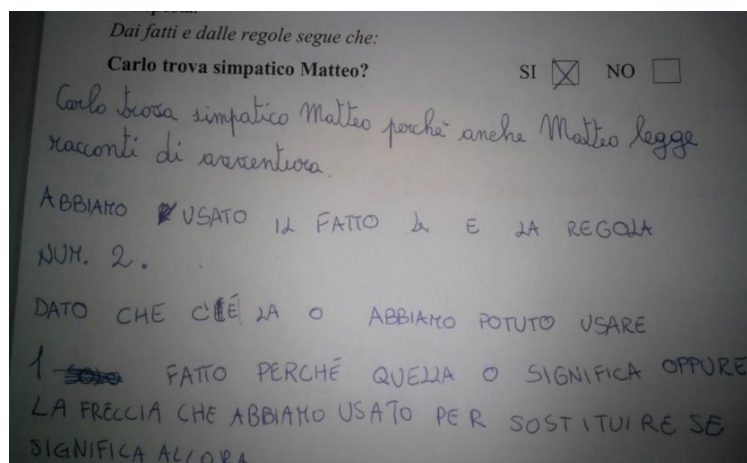 Dai fatti e dalle regole segue che:
Carlo trova simpatico Matteo? SI NO
Carlo trova simpatico Matteo perchè anche Matteo legge
racconti di avventura.
ABBIAMO USATO IL FATTO 4 E LA REGOLA
NUM. 2.
DATO CHE C'É LA O ABBIAMO POTUTO USARE
1 FATTO PERCHÉ QUELLA O SIGNIFICA OPPURE
LA FRECCIA CHE ABBIAMO USATO PER SOSTITUIRE SE
SIGNIFICA ALLORA